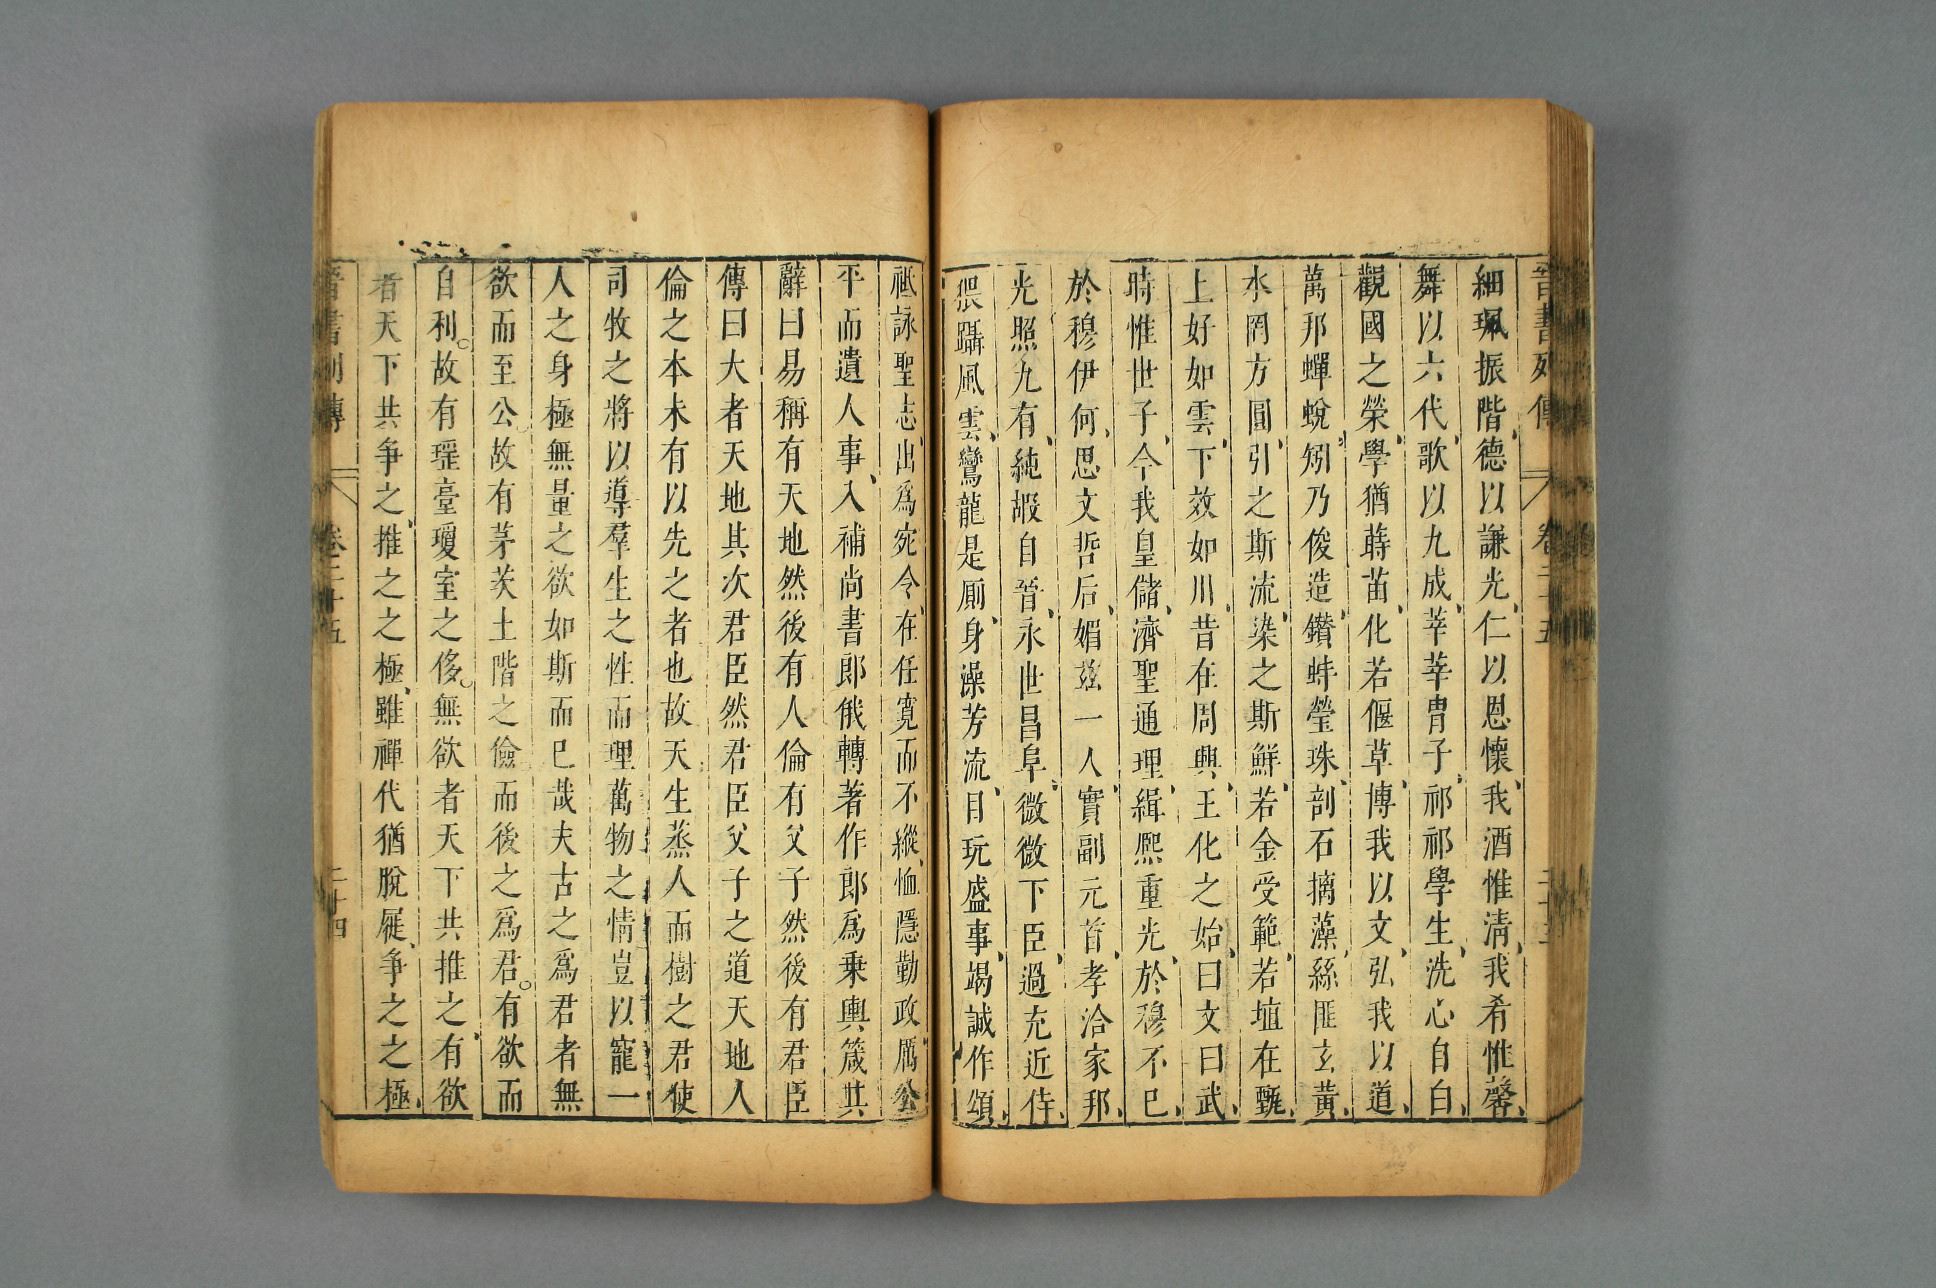 晉書列傳 卷二十五
細珮振階德以謙光仁以恩懷我酒惟淸我肴惟馨
舞以六代歌以九成莘莘胄子祁祁學生洗心自白
觀國之榮學猶蒔苗化若偃草博我以文弘我以道
萬邦蟬蛻矧乃俊造鑽蚌瑩珠剖石摛藻絲匪玄黃
水罔方圓引之斯流染之斯鮮若金受範若埴在甄
上好如雲下效如川昔在周興王化之始曰文曰武
時惟世子今我皇儲濟聖通理緝熙重光於穆不已
於穆伊何思文哲后媚兹一人實副元首孝洽家邦
光照九有純嘏自晉永世昌阜微微下臣過充近侍
猥躡風雲鸞龍是厠身澡芳流目玩盛事竭誠作頌
祗詠聖志出爲宛令在任寛而不縱恤隱勤政厲公
平而遺人事入補尚書郎俄轉著作郎爲乗輿箴其
辭曰易稱有天地然後有人倫有父子然後有君臣
傳曰大者天地其次君臣然君臣父子之道天地人
倫之本未有以先之者也故天生蒸人而樹之君使
司牧之將以導羣生之性而理萬物之情豈以寵一
人之身極無量之欲如斯而已哉夫古之爲君者無
欲而至公故有茅茨土階之儉而後之爲君有欲而
自利故有瑶臺瓊室之侈無欲者天下共推之有欲
者天下共爭之推之之極雖禪代猶脫屣爭之之極
晉書列傳 卷二十五 二十四